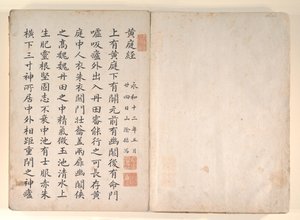 黃庭經
永和十二年五月
廿四日山陰縣寫
上有黃庭下有關元前有幽闕後有命門
噓吸廬外出入丹田審能行之可長存黃
庭中人衣朱衣關門壯籥蓋兩扉幽闕俠
之高魏魏丹田之中精氣微玉池清水上
生肥靈根堅固志不衰中池有士服赤朱
橫下三寸神所居中外相距重閉之神廬